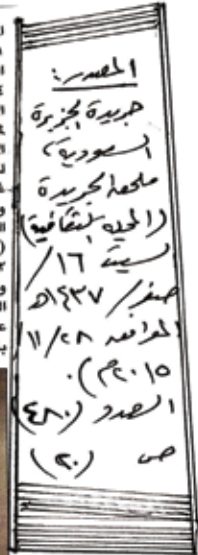 المصدر:
جريدة الجزيرة
السعودية،
ملحق الجريدة
(المجلة الثقافية)
السبت ١٦/
صفر/ ١٤٣٧هـ
الموافق ٢٨/١١/
٢٠١٥م).
العدد (٤٨٠)
ص (٢٠)